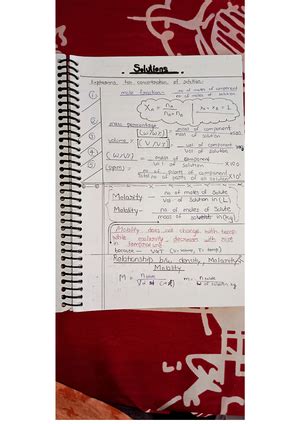 Solutions
Expressing the concentration of solution
① mole fraction = no of moles of component
no of moles of solution
XA = nA
nA + nB
XA + XB = 1
② mass percentage
[W/W %] = mass of component
mass of solution × 100
③ volume %
[V/V] = vol of component
Vol of Solution × 100
④ [W/V] = mass of component
vol of Solution × 100
⑤ (ppm) = no of parts of component
Total no of parts of all solution × 10⁶
Molarity - no of moles of Solute
Vol of Solution in (L)
Molality - no of moles of Solute
mass of in (kg)
Molality does not change with temp
while molarity decreases with rise
in temperature
because
Relationship b/w density, Molarity &
Molality
M = n solute
m = n solute